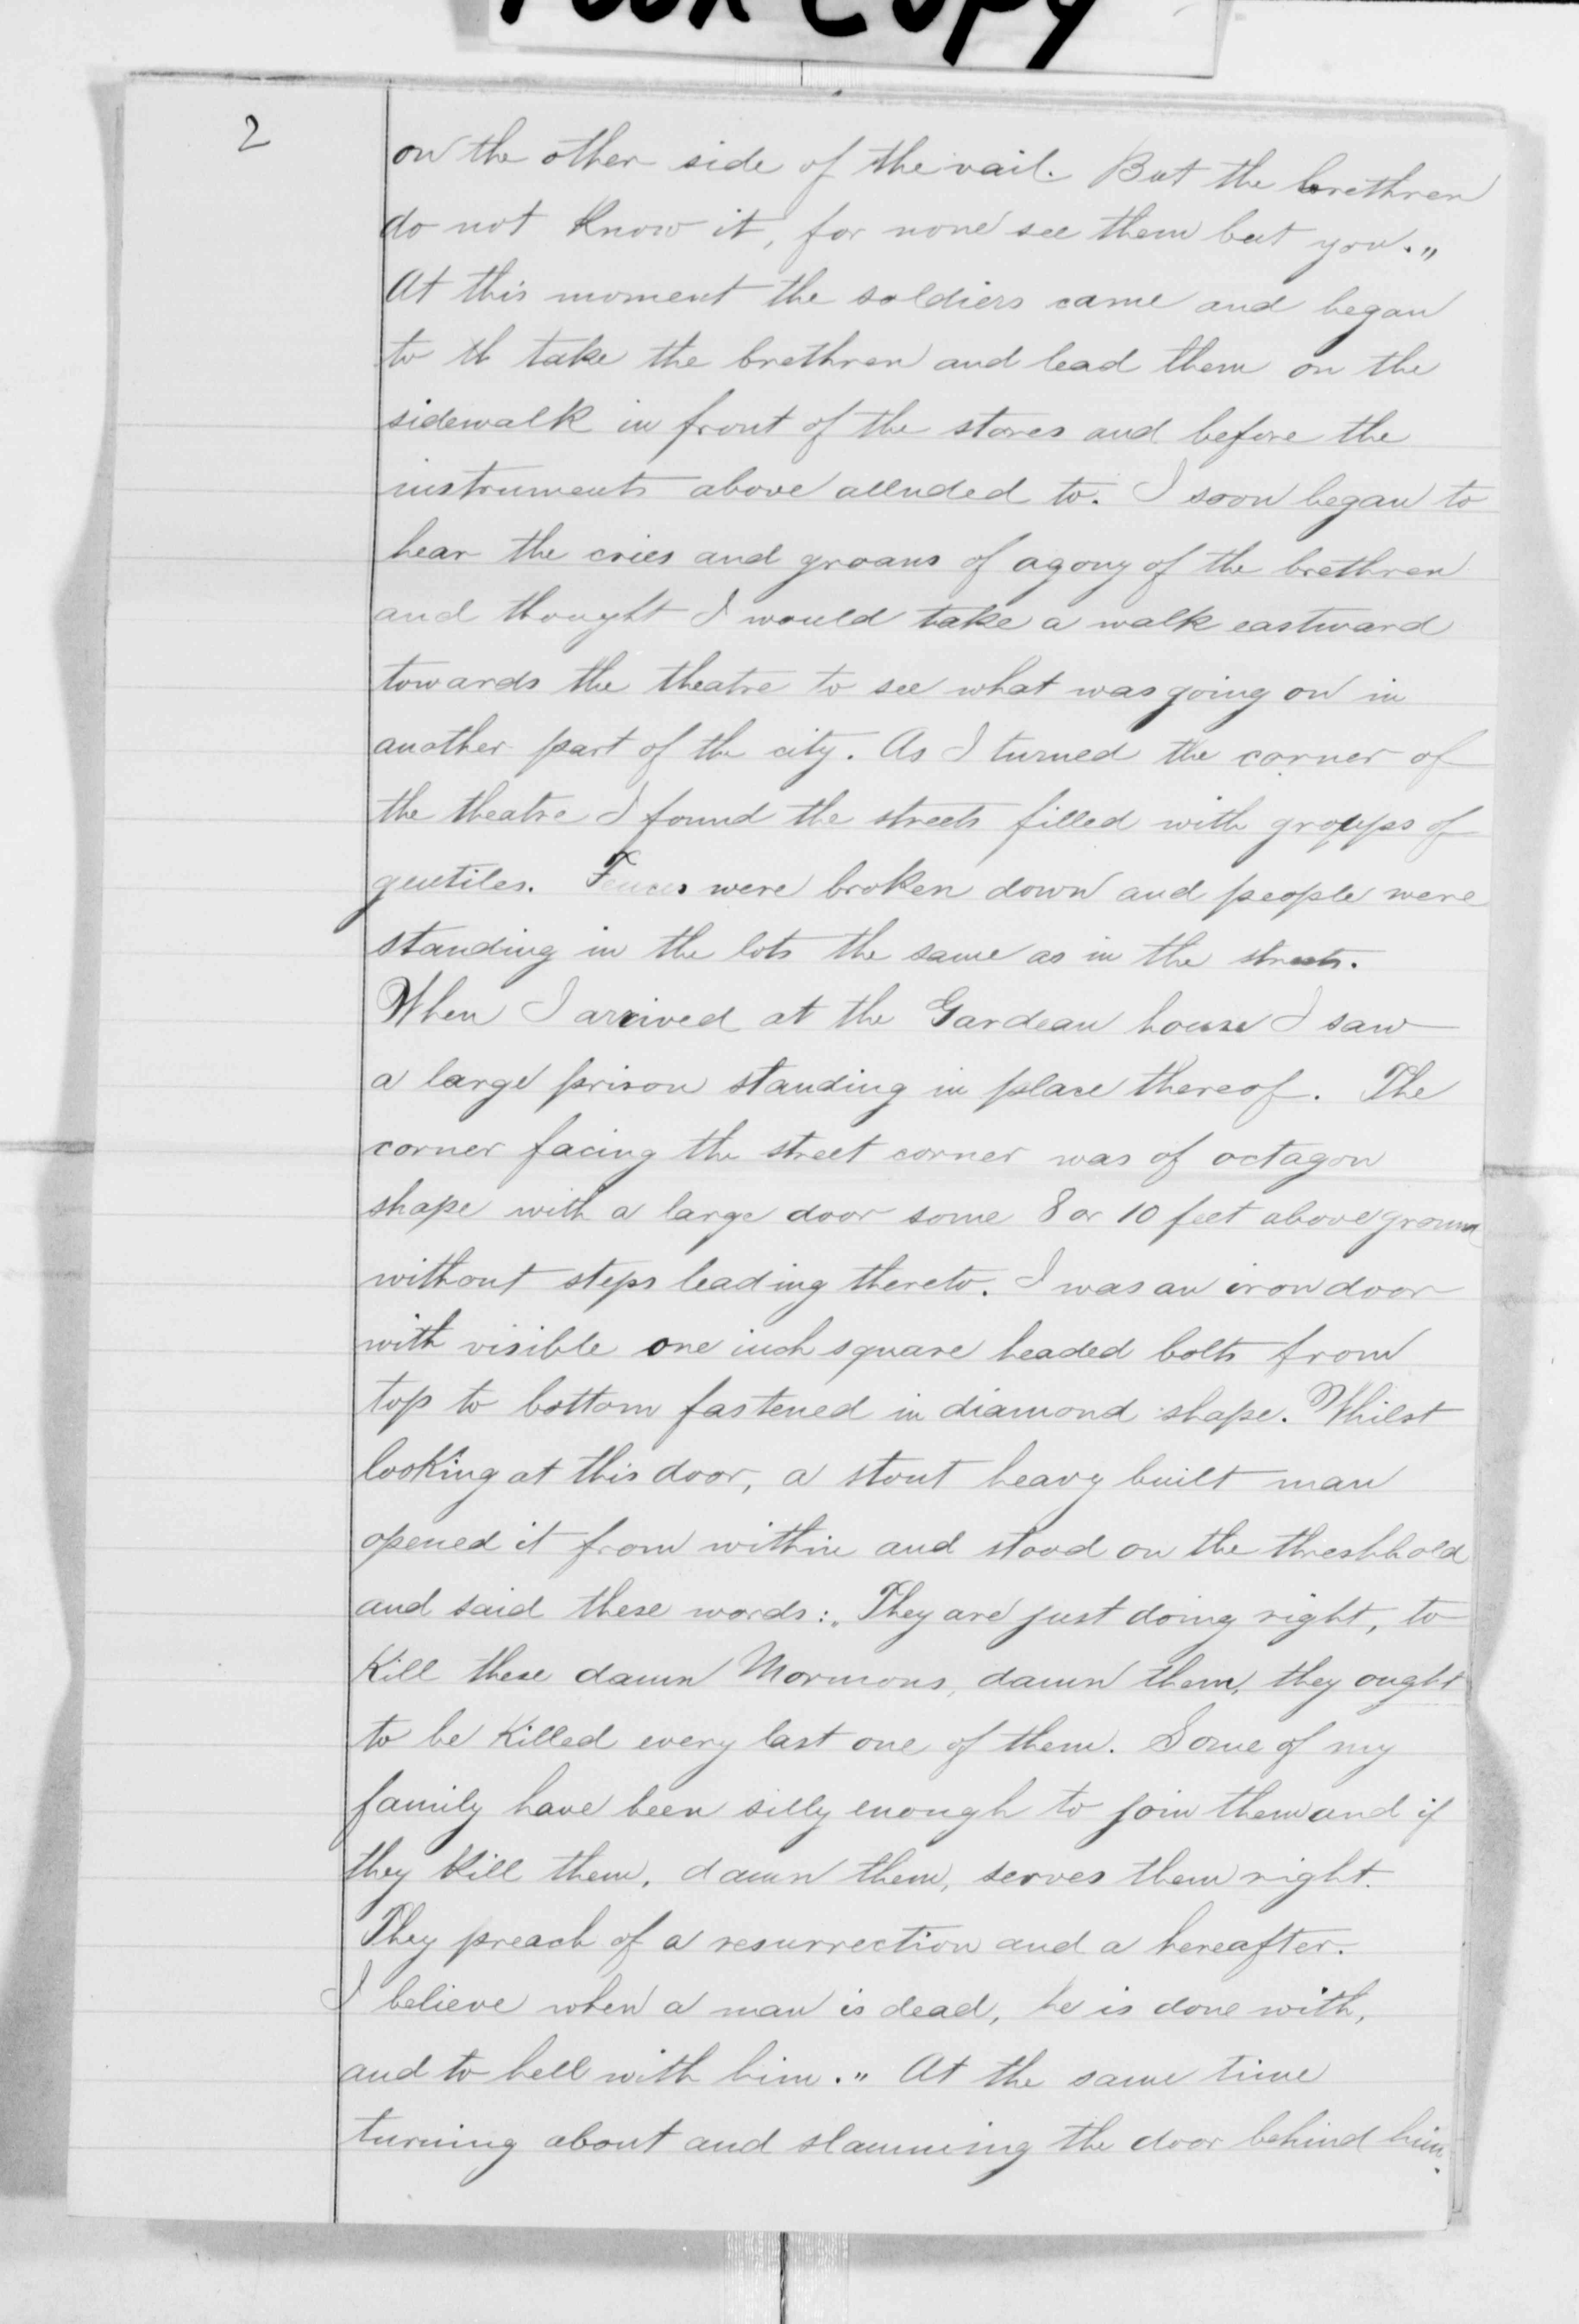 POOR COPY
2
on the other side of the vail. But the brethren
do not Know it, for none see them but you."
At this moment the soldiers came and began
to th take the brethren and lead them on the
sidewalk in front of the stores and before the
instruments above alluded to. I soon began to
hear the cries and groans of agony of the brethren
and thought I would take a walk eastward
towards the theatre to see what was going on in
another part of the city. As I turned the corner of
the theatre I found the streets filled with groups of
gentiles. Fences were broken down and people were
standing in the lots the same as in the streets.
When I arrived at the Gardeau house I saw
a large prison standing in place thereof. The
corner facing the street corner was of octagon
shape with a large door some 8 or 10 feet above ground
without steps leading thereto. I was an iron door
with visible one inch square headed bolts from
top to bottom fastened in diamond shape. Whilst
looking at this door, a stout heavy built man
opened it from within and stood on the threshhold
and said these words: "They are just doing right, to
Kill these damn Mormons, damn them, they ought
to be Killed every last one of them. Some of my
family have been silly enough to join them and if
they Kill them, damn them, serves them right.
They preach of a resurrection and a hereafter.
I believe when a man is dead, he is done with,
and to hell with him." At the same time
turning about and slamming the door behind him.